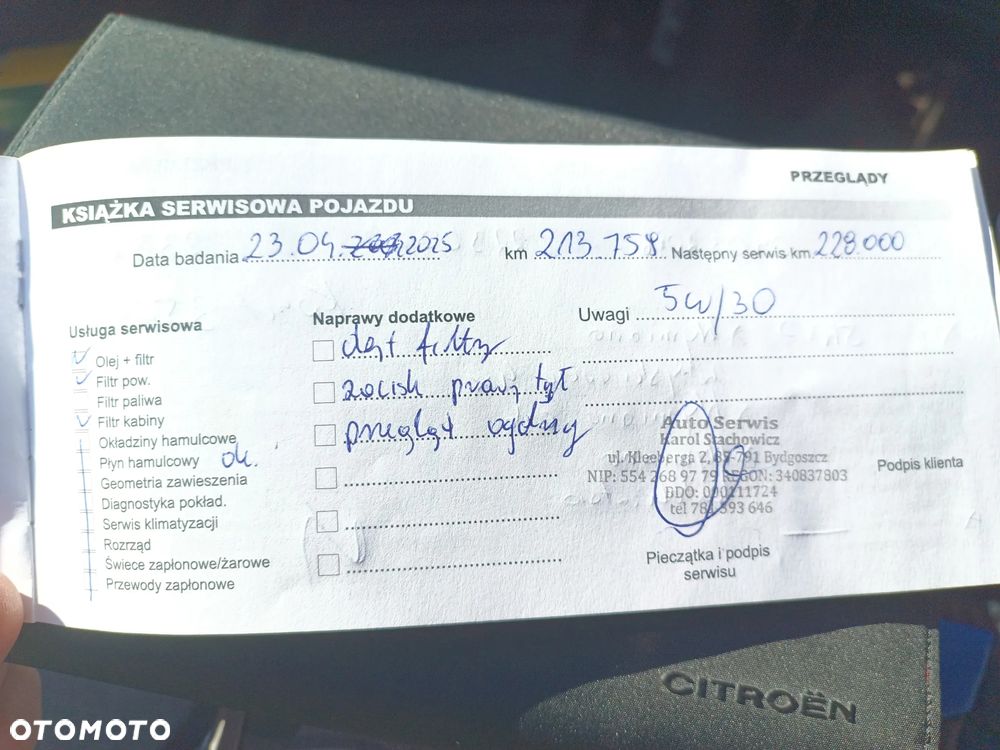 PRZEGLĄDY
KSIĄŻKA SERWISOWA POJAZDU
Data badania 23.04. 2025 km 213.759 Następny serwis km 228.000
Usługa serwisowa
Olej + filtr
Filtr pow.
Filtr paliwa
Filtr kabiny
Okładziny hamulcowe
Płyn hamulcowy ok.
Geometria zawieszenia
Diagnostyka pokład.
Serwis klimatyzacji
Rozrząd
Świece zapłonowe/żarowe
Przewody zapłonowe
Naprawy dodatkowe
olej + filtry
zacisk prawy tył
przegląd ogólny
Uwagi 5W/30
Auto Serwis
Karol Stachowicz
ul. Kleeberga 2, 85-791 Bydgoszcz
NIP: 554 268 97 79 REGON: 340837803
BDO: 000211724
tel 781 393 646
Pieczątka i podpis
serwisu
Podpis klienta
CITROËN
OTOMOTO